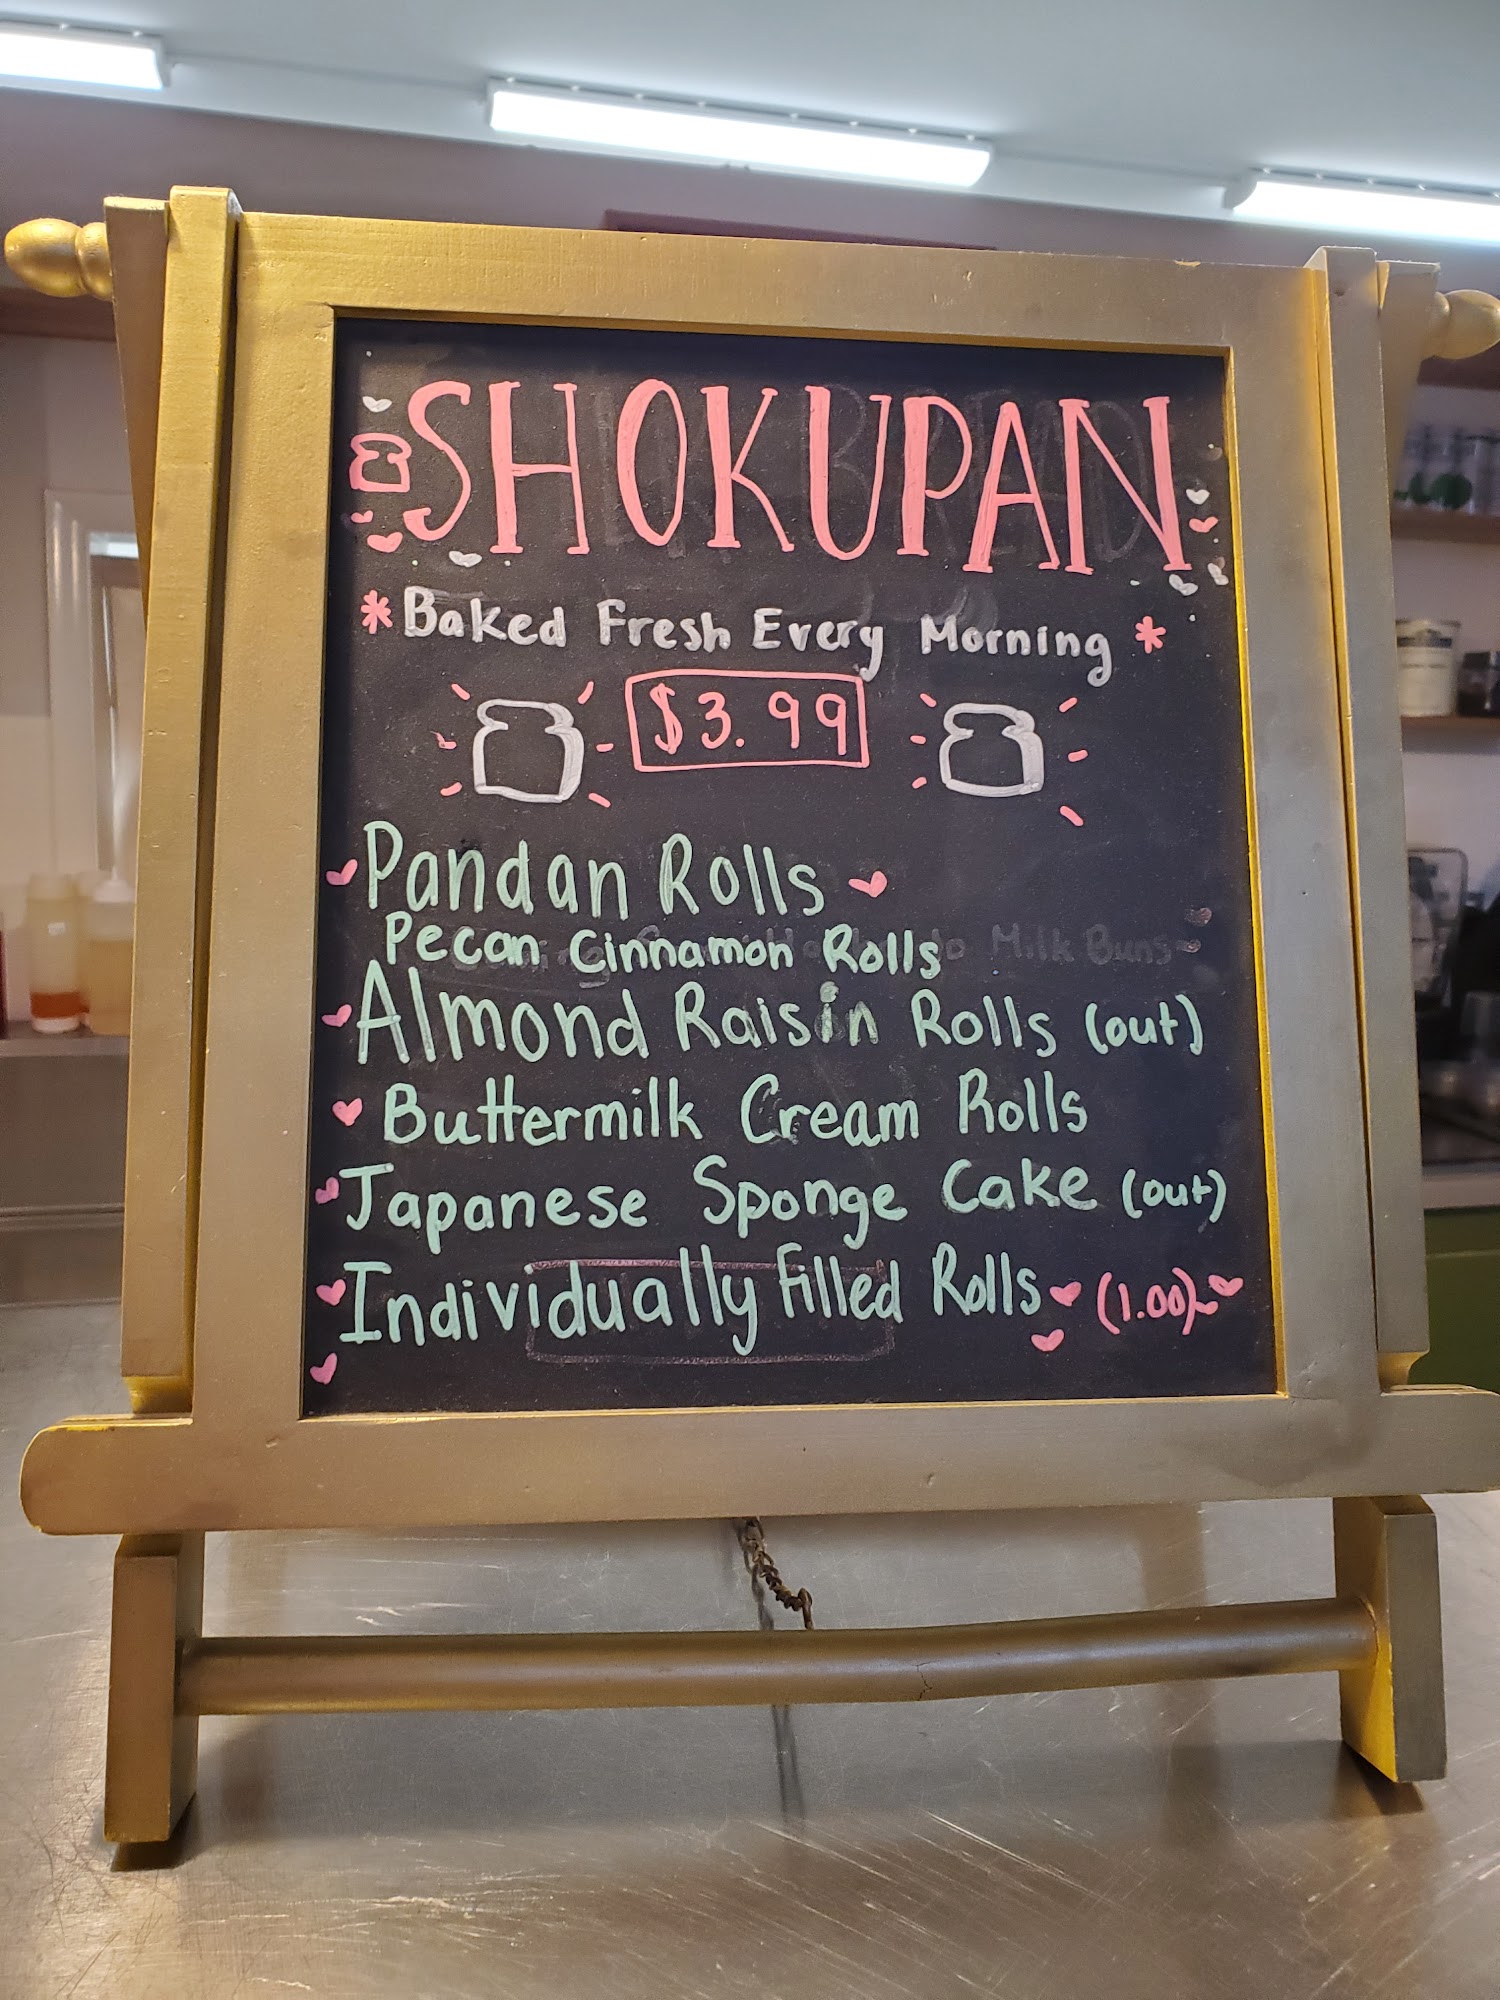 SHOKUPAN
*Baked Fresh Every Morning*
$3.99
Pandan Rolls
Pecan Cinnamon Rolls
Milk Buns
Almond Raisin Rolls (out)
Buttermilk Cream Rolls
Japanese Sponge Cake (out)
Individually Filled Rolls (1.00)